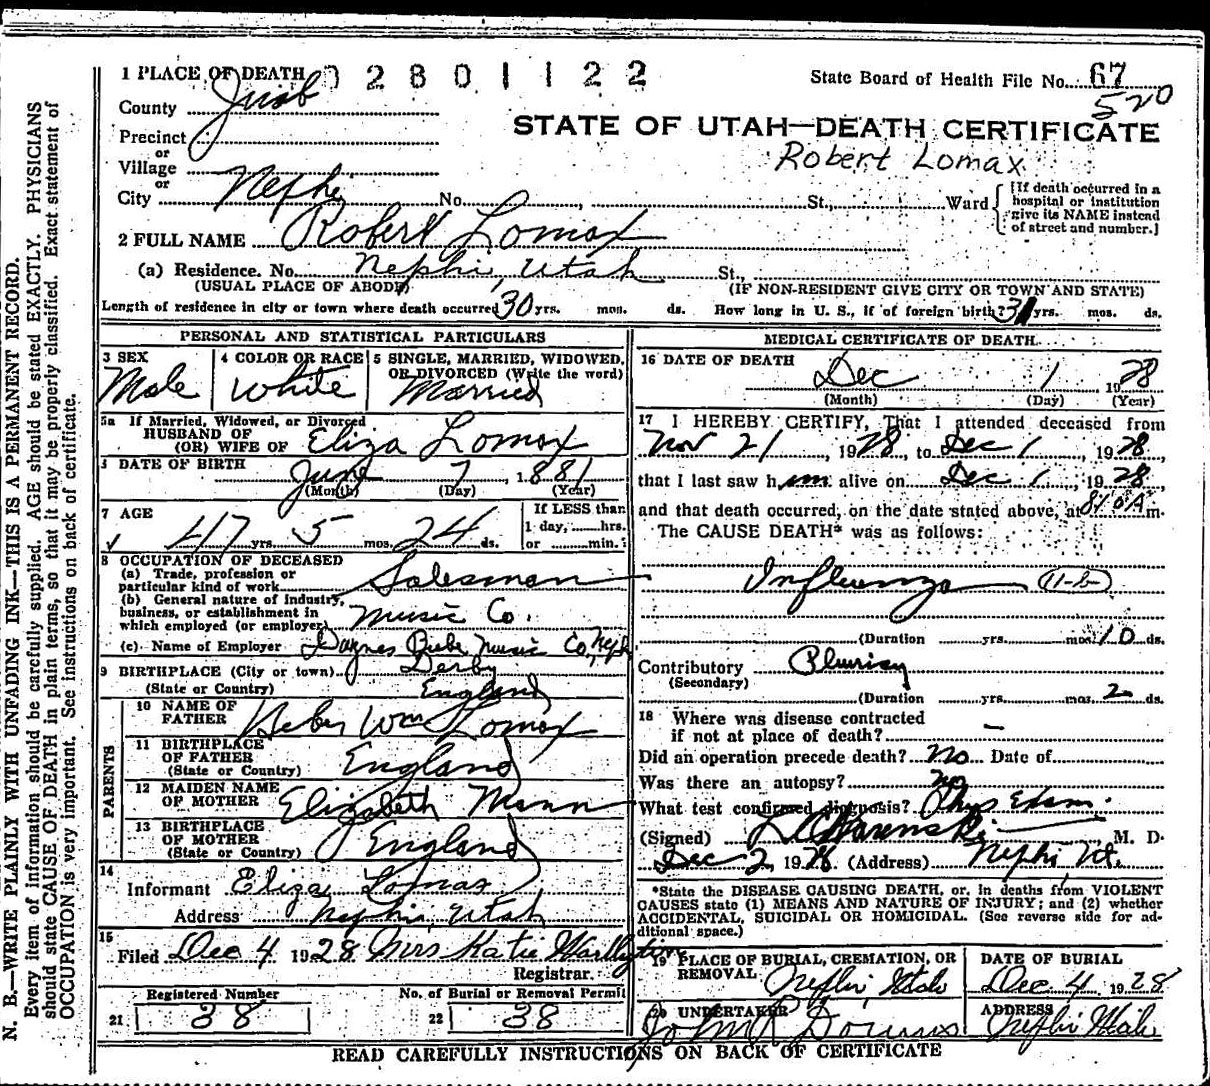 1 PLACE OF DEATH 02801122
State Board of Health File No. 67
520
County Juab
STATE OF UTAH—DEATH CERTIFICATE
Precinct
Robert Lomax
or
Village
or
City Nephi No. , St., Ward
[If death occurred in a
hospital or institution
give its NAME instead
of street and number.]
2 FULL NAME Robert Lomax
(a) Residence. No. Nephi, Utah St.,
(USUAL PLACE OF ABODE) (IF NON-RESIDENT GIVE CITY OR TOWN AND STATE)
Length of residence in city or town where death occurred 30 yrs. mos. ds. How long in U. S., if of foreign birth? 31 yrs. mos. ds.
PERSONAL AND STATISTICAL PARTICULARS
3 SEX 4 COLOR OR RACE 5 SINGLE, MARRIED, WIDOWED,
OR DIVORCED (Write the word)
Male White Married
5a If Married, Widowed, or Divorced
HUSBAND OF
(OR) WIFE OF Eliza Lomax
DATE OF BIRTH
June 7, 1881
(Month) (Day) (Year)
7 AGE
47 yrs. 5 mos. 24 ds.
If LESS than
1 day, hrs.
or min.
8 OCCUPATION OF DECEASED
(a) Trade, profession or
particular kind of work Salesman
(b) General nature of industry,
business, or establishment in
which employed (or employer) Music Co.
(c) Name of Employer Daynes Beebe Music Co, Neph
9 BIRTHPLACE (City or town) Derby
(State or Country) England
PARENTS
10 NAME OF
FATHER Heber Wm Lomax
11 BIRTHPLACE
OF FATHER
(State or Country) England
12 MAIDEN NAME
OF MOTHER Elizabeth Mann
13 BIRTHPLACE
OF MOTHER
(State or Country) England
14
Informant Eliza Lomax
Address Nephi, Utah
15
Filed Dec 4 1928 Mrs Katie
Registrar.
Registered Number No. of Burial or Removal Permit
21 38 22 38
MEDICAL CERTIFICATE OF DEATH
16 DATE OF DEATH
Dec 1 1928
(Month) (Day) (Year)
17 I HEREBY CERTIFY, That I attended deceased from
Nov 21, 1928, to Dec 1, 1928,
that I last saw him alive on Dec 1, 1928,
and that death occurred, on the date stated above, at 8:10 A m.
The CAUSE DEATH* was as follows:
Influenza (11-b)
(Duration yrs. mos. 10 ds.
Contributory Pleurisy
(Secondary)
(Duration yrs. mos. 2 ds.
18 Where was disease contracted
if not at place of death? —
Did an operation precede death? No Date of
Was there an autopsy? No
What test confirmed diagnosis? Phys Exam.
(Signed) M. D.
Dec 2, 1928 (Address) Nephi Ut.
*State the DISEASE CAUSING DEATH, or, in deaths from VIOLENT
CAUSES state (1) MEANS AND NATURE OF INJURY; and (2) whether
ACCIDENTAL, SUICIDAL OR HOMICIDAL. (See reverse side for ad-
ditional space.)
19 PLACE OF BURIAL, CREMATION, OR
REMOVAL Nephi Utah
DATE OF BURIAL
Dec 4 1928
20 UNDERTAKER
ADDRESS
Nephi Utah
READ CAREFULLY INSTRUCTIONS ON BACK OF CERTIFICATE
N. B.—WRITE PLAINLY WITH UNFADING INK—THIS IS A PERMANENT RECORD.
Every item of information should be carefully supplied. AGE should be stated EXACTLY. PHYSICIANS
should state CAUSE OF DEATH in plain terms, so that it may be properly classified. Exact statement of
OCCUPATION is very important. See instructions on back of certificate.